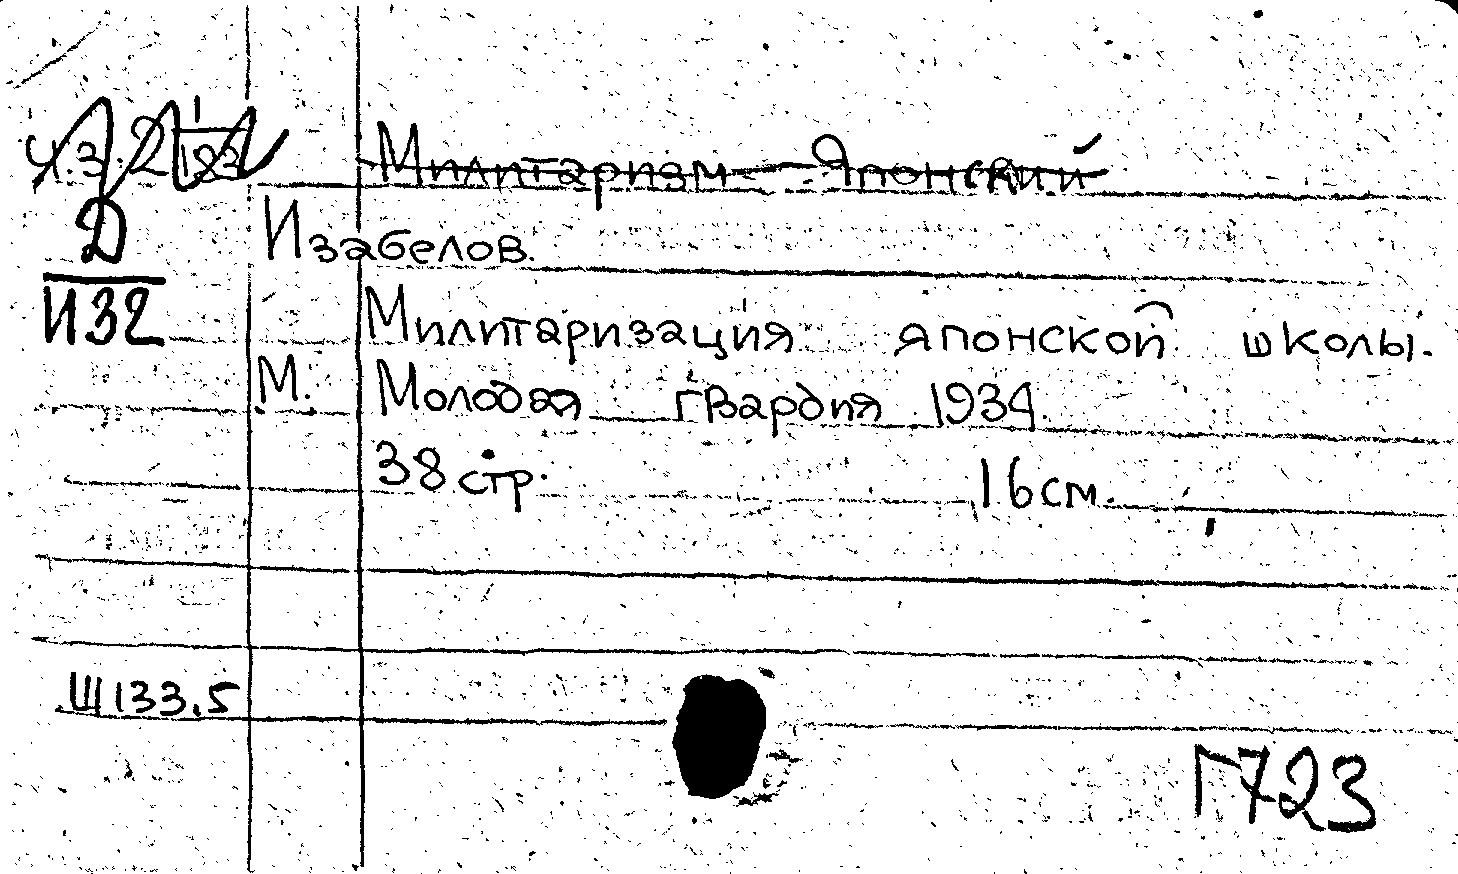 Милитаризм – Японский
Д
Изабелов.
И32
Милитаризация японской школы.
М. Молодая гвардия 1934.
38 стр. 16 см.
Щ133.5
Г723